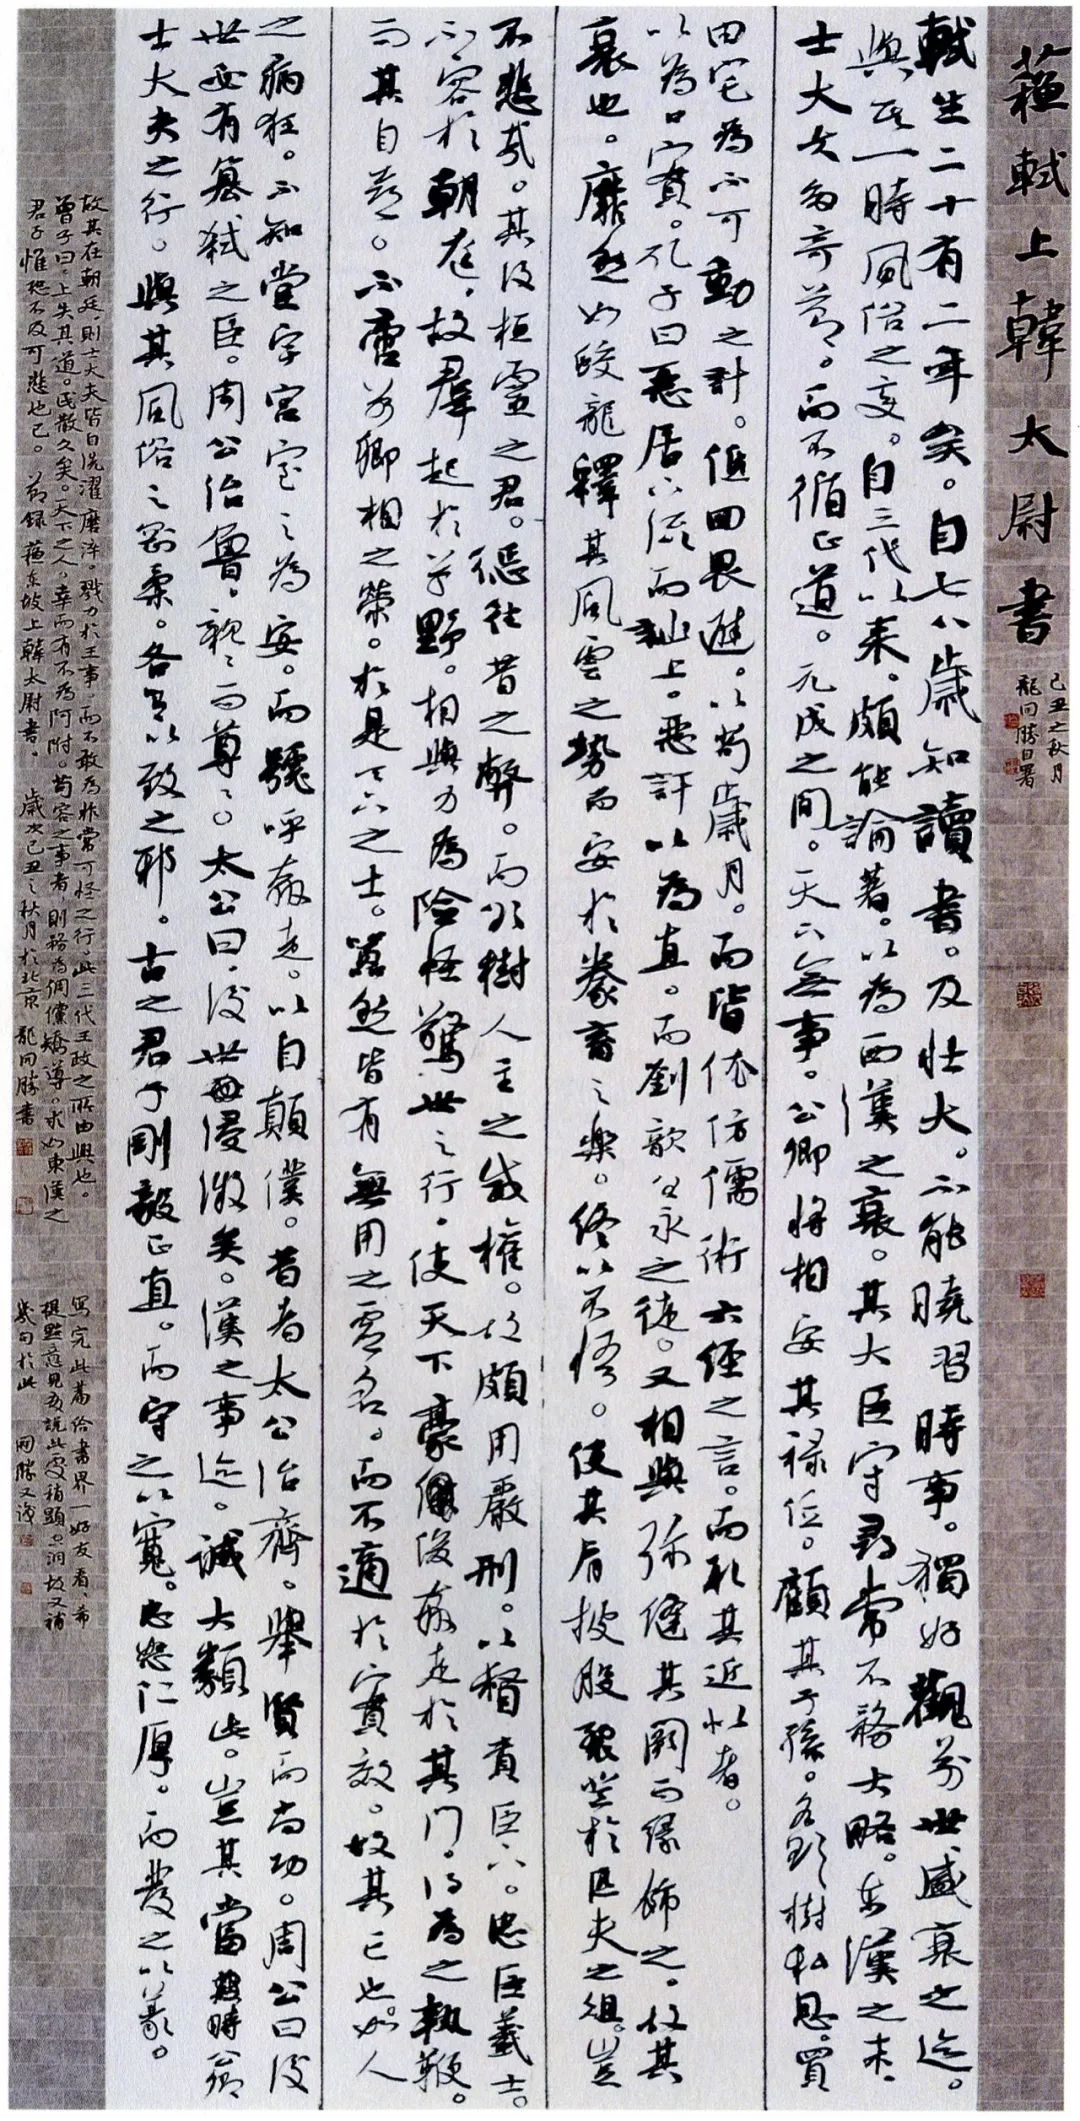 蘓軾上韓太尉書
己丑之秋月
龍同勝日署
軾生二十有二年矣。自七八歲知讀書。及壯大。不能曉習時事。獨好觀前世盛衰之迹。
與其一時風俗之變。自三代以来。頗能論著。以為西漢之衰。其大臣守尋常不務大略。东漢之末。
士大夫多奇節。而不循正道。元成之間。天下無事。公卿将相安其禄位。顧其子孫。各欲樹私恩。買
田宅為不可動之計。低回畏避。以苟歲月。而皆依仿儒術六經之言。而取其近似者。
以為口實。孔子曰惡居下流而訕上。惡訐以為直。而劉歆谷永之徒。又相與弥縫其闕而緣飾之。故其
衰也。靡然如蛟龍釋其風雲之勢而安於豢畜之樂。終以不悟。使其肩披股裂登於匹夫之俎。豈
不悲哉。其後桓靈之君。懲往昔之弊。而欲樹人主之威權。故頗用嚴刑。以督責臣下。忠臣義士。
不容於朝廷。故羣起於草野。相與力為險怪驚世之行。使天下豪傑俊奔走於其門。得為之執鞭。
而其自喜。不啻若卿相之榮。於是天下之士。囂然皆有無用之虛名。而不適於實效。故其亡也。如人
之病狂。不知堂宇宫室之為安。而號呼奔走。以自顛僕。昔者太公治齊。舉賢而尚功。周公曰後
世必有篡弒之臣。周公治魯。親〻而尊〻。太公曰。後世寖微矣。漢之事迹。誠大類此。豈其當時
士大夫之行。與其風俗之剛柔。各有以致之邪。古之君子剛毅正直。而守之以寬。忠恕仁厚。而發之以義。
故其在朝廷，則士大夫皆自洗濯磨淬。戮力於王事。而不敢為非常可怪之行。此三代王政之所由興也。
曾子曰。上失其道。民散久矣。天下之人。幸而有不為阿附。苟容之事者，則務為倜儻矯導。求如東漢之
君子惟恐不及可悲也已。節録蘓东坡上韓太尉書。歲次己丑之秋月於北京龍同勝書
寫完此篇給書界一好友看、希
提點意見友說此處稍顯空洞故又補
幾句於此 同勝又識